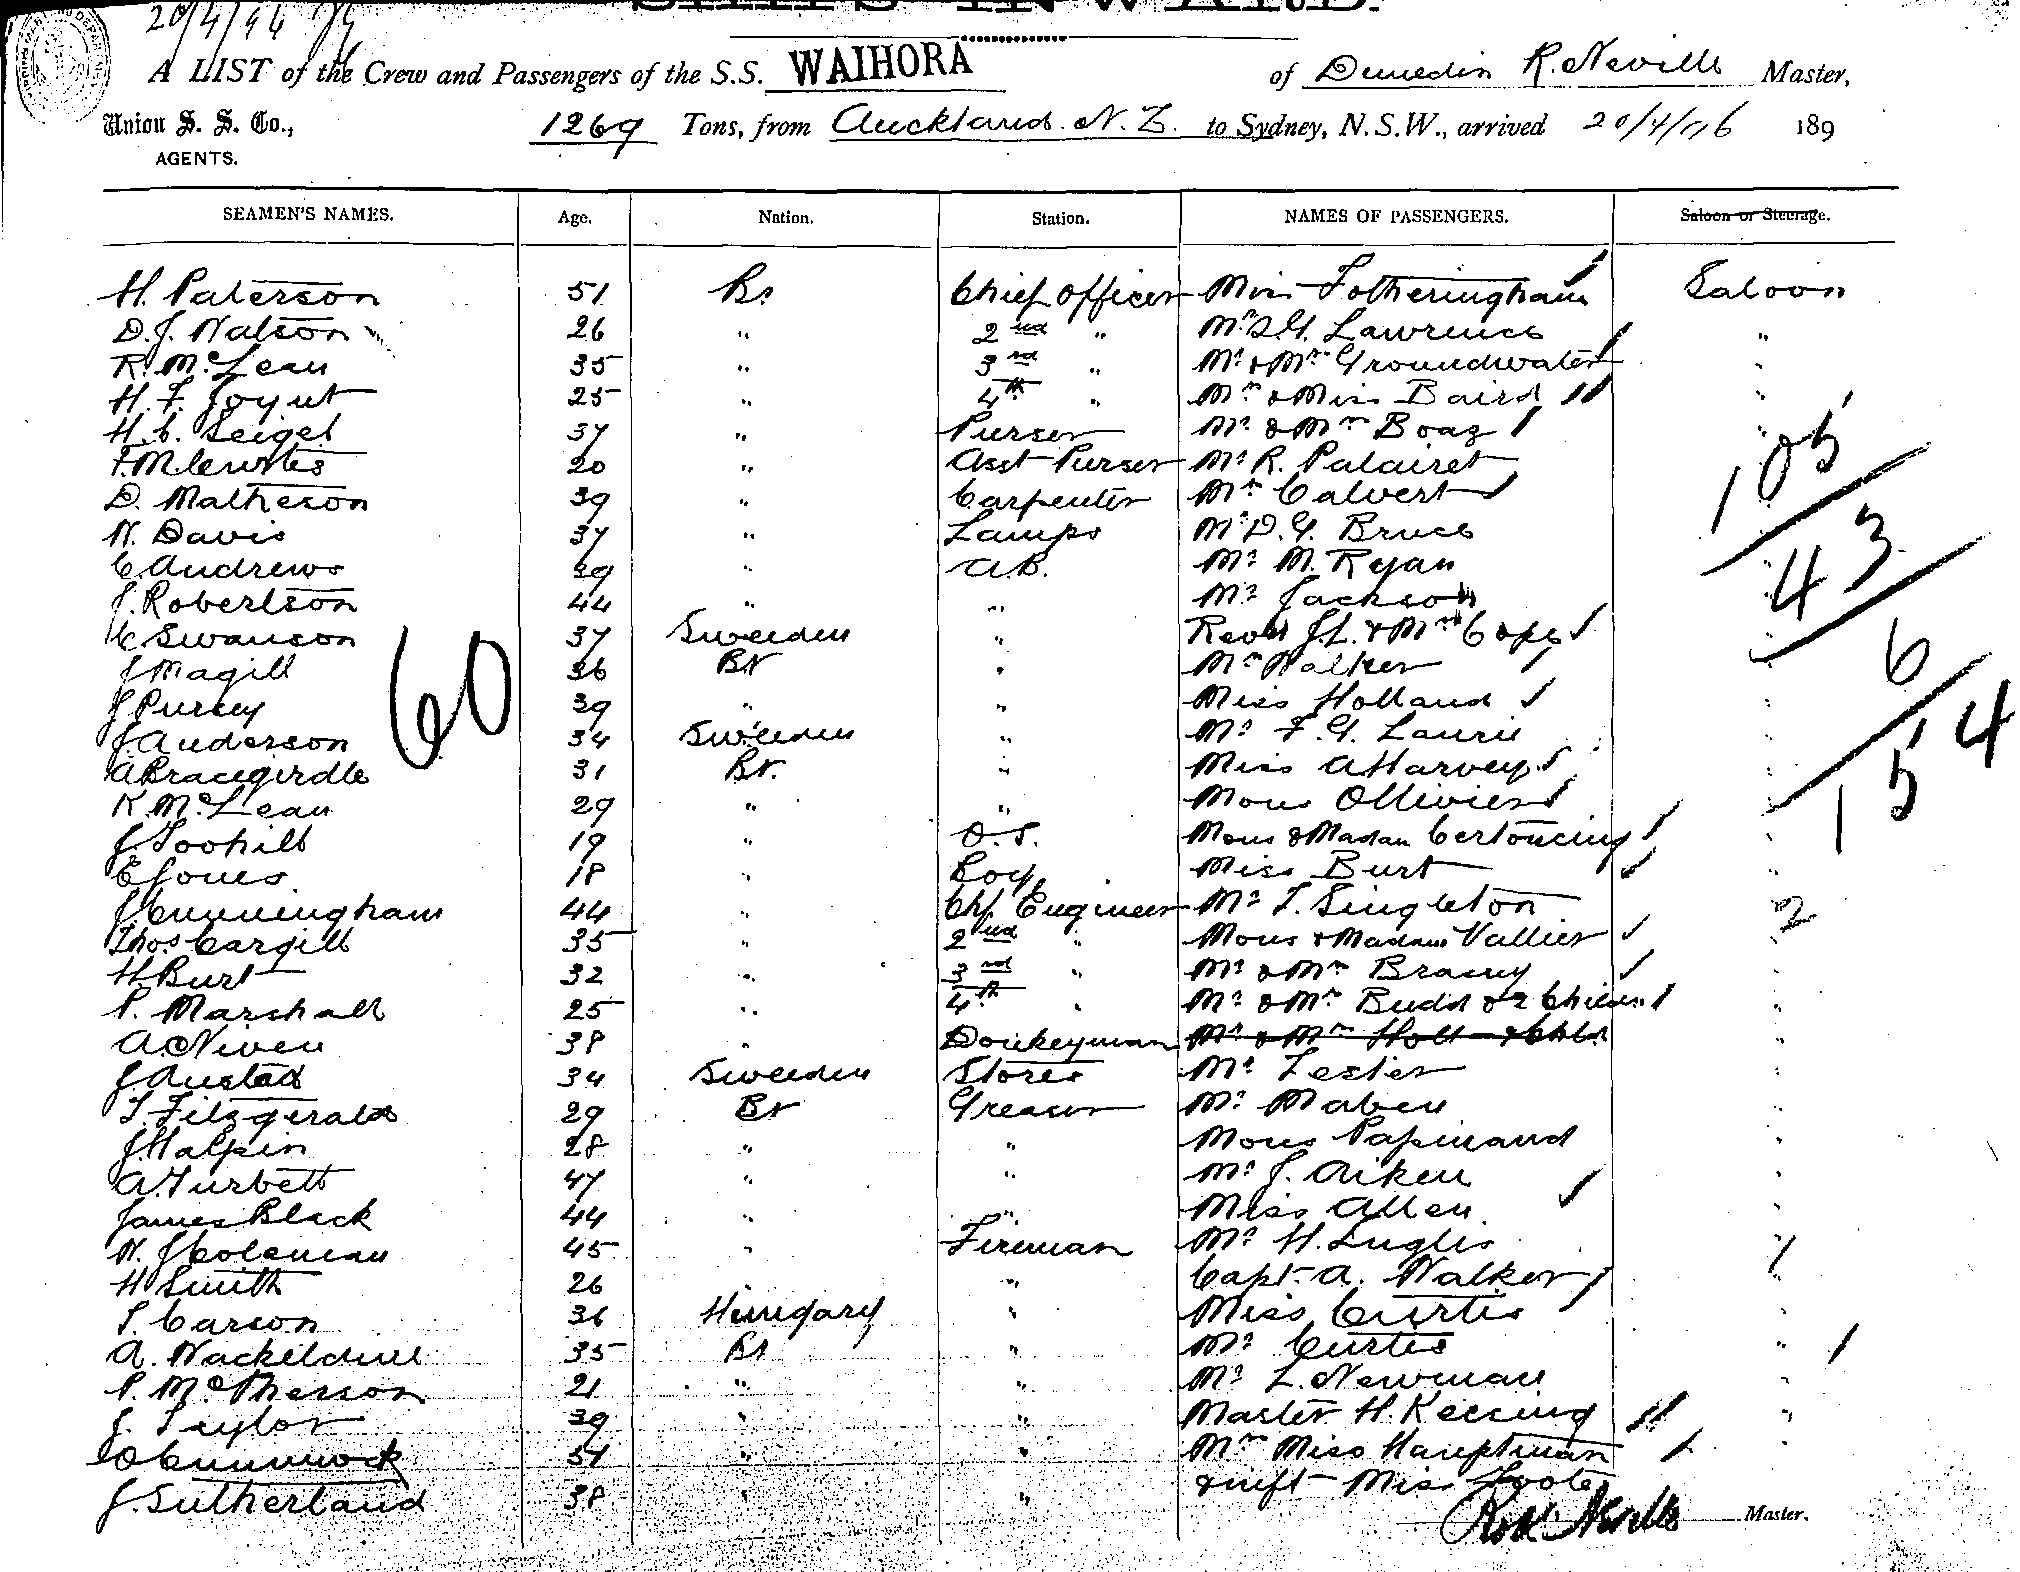 20/4/96
SHIPS INWARD.
A LIST of the Crew and Passengers of the S.S. WAIHORA of Dunedin R. Neville Master,
Union S. S. Co., 1269 Tons, from Auckland N.Z. to Sydney, N.S.W., arrived 20/4/96 189
AGENTS.
SEAMEN'S NAMES. Age. Nation. Station. NAMES OF PASSENGERS. Saloon or Steerage.
H. Paterson 51 Br Chief Officer Miss Fotheringham Saloon
D. J. Watson 26 " 2nd " Lawrence "
R. McLean 35 " 3rd " Mr & Mrs Groundwater "
H. F. 25 " 4th " Mrs & Miss Baird "
H. C. Seigel 37 " Purser Mr & Mrs Boaz
20 " Asst Purser Mr R. Palairet
D. Matheson 39 " Carpenter Mrs Calvert
W. Davis 37 " Lamps Mr D. G. Bruce
C. Andrews 39 " A.B. Mr M. Ryan
J. Robertson 44 " " Mr Jackson
C Swanson 37 Sweeden " Revd J. L. & Mrs Cope
J Magill 36 Br " Mrs Walker
J Pursey 39 " " Miss Holland
J. Anderson 34 Sweeden " Mr F. G. Laurie
A Bracegirdle 31 Br. " Miss A Harvey
K. McLean 29 " " Mons Ollivier
J Toohill 19 " O.S. Mons & Madam
E Jones 18 " Boy Miss Burt
J Cunningham 44 " Chf Engineer Mr T. Singleton
Thos Cargill 35 " 2nd " Mons & Madam Vallier
H Burt 32 " 3rd " Mr & Mrs Bracey
P. Marshall 25 " 4th " Mr & Mrs Budd & 2 Children
A. Niven 38 " Donkeyman Mr & Mrs Holt & Chld
J Austad 34 Sweeden Stores Mr Lester
T. Fitzgerald 29 Br Greaser Mr Maben
J Halpin 28 " " Mons Papinaud
A. Turbett 47 " " Mr J. Aiken
James Black 44 " " Miss Allen
W. J Coleman 45 " Fireman Mr H. Inglis
H Smith 26 " Capt. A. Walker
S. Carson 36 Hungary " Miss Curtis
A. 35 Br " Mr Curtis
P. McPherson 21 " " Mr L. Newman
J. Taylor 39 " " Master H. Keesing
" " Mrs Miss Hauptman
J. Sutherland 38 " " & inft Miss Foote
Neville Master.
60
105
43
6
154
2